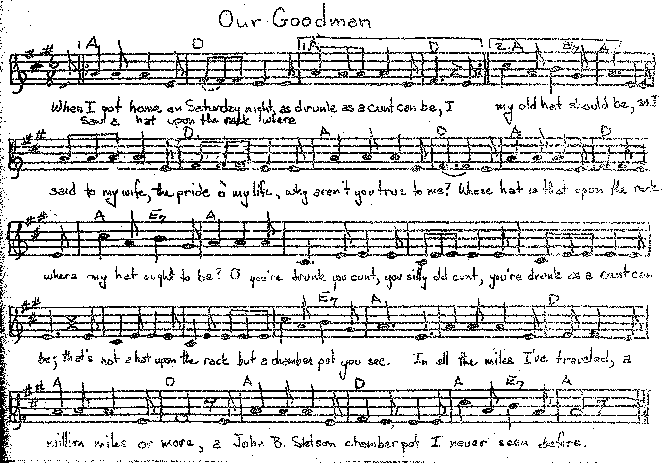 Our Goodman
A D 1. A D 2. A E7 A
When I got home on Saturday night, as drunk as a cunt can be, I my old hat should be, so I
saw a hat upon the rack where
D A D A D
said to my wife, the pride o my life, why aren't you true to me? Whose hat is that upon the rack
A E7 A
where my hat ought to be? O you're drunk you cunt, you silly old cunt, you're drunk as a cunt can
E7 A D
be, that's not a hat upon the rack but a chamber pot you see. In all the miles I've traveled, a
A D A D A E7 A
million miles or more, a John B. Stetson chamber pot I never seen before.